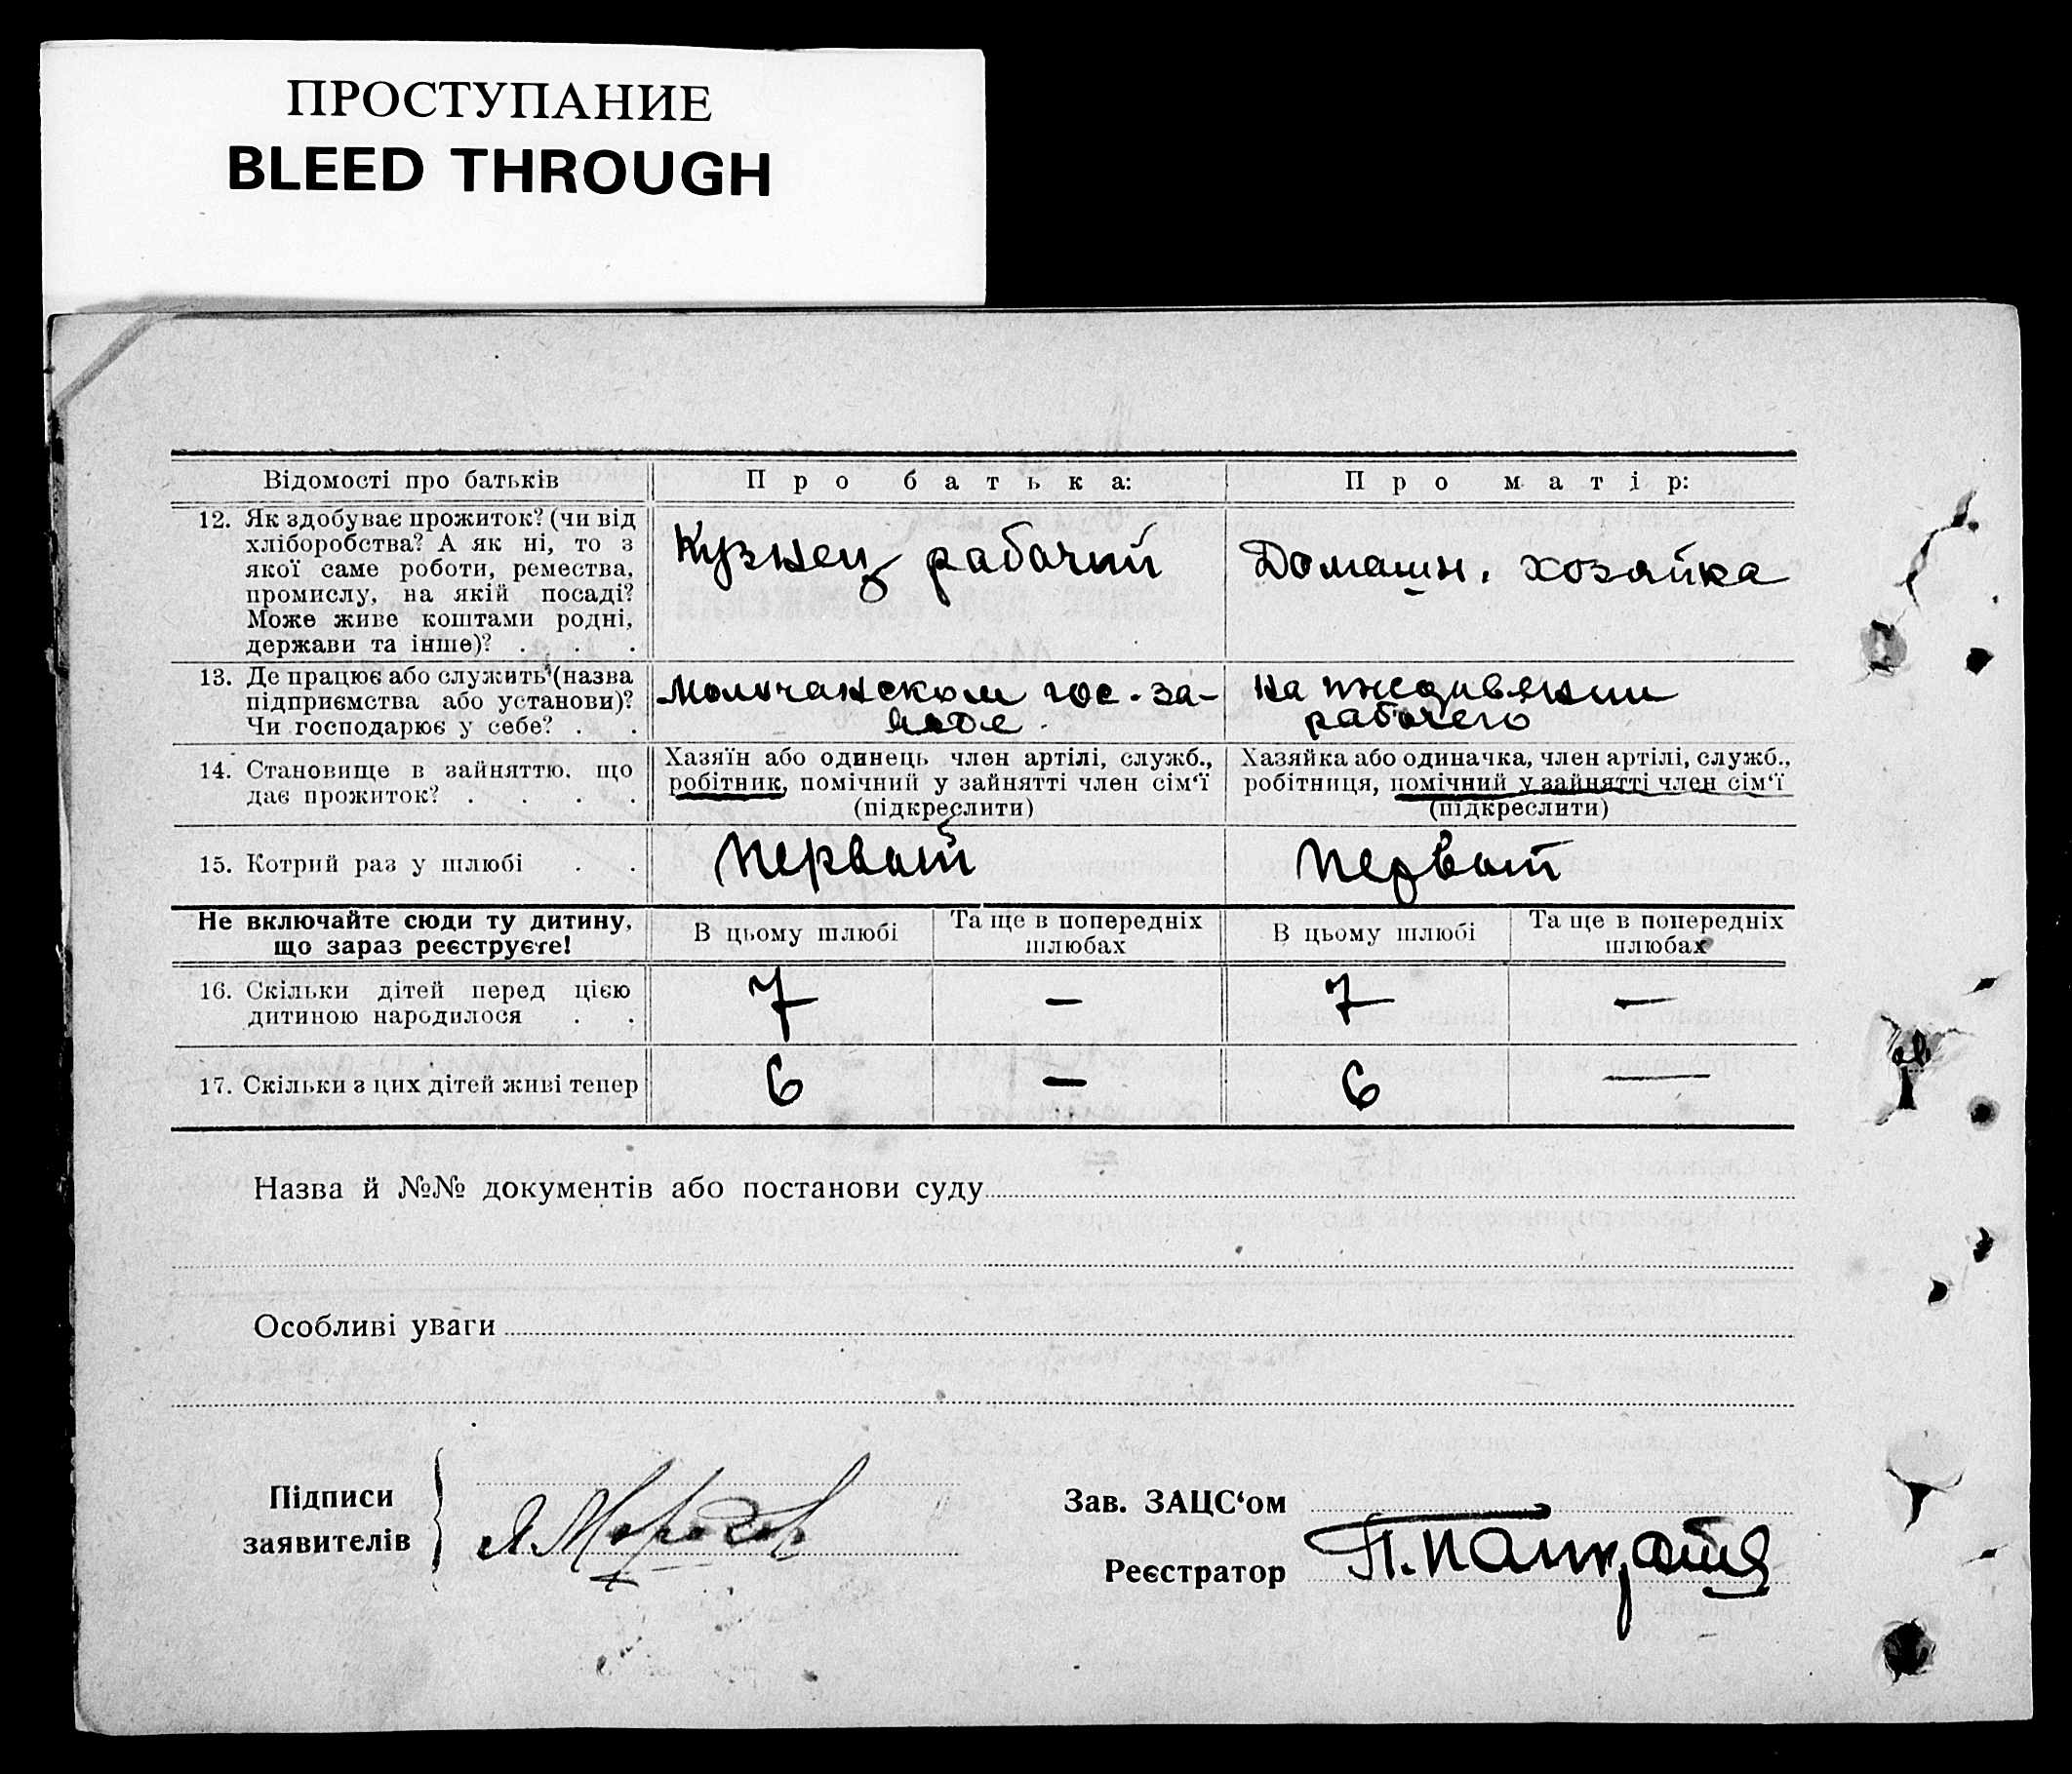 ПРОСТУПАНИЕ
BLEED THROUGH
Відомості про батьків
Про батька:
Про матір:
12. Як здобуває прожиток? (чи від
хліборобства? А як ні, то з
якої саме роботи, ремества,
промислу, на якій посаді?
Може живе коштами родні,
держави та інше)? . . .
Кузнец рабочий
Домашн. хозяйка
13. Де працює або служить (назва
підприємства або установи)?
Чи господарює у себе? . .
Молочанском гос. за-
воде.
на иждивении
рабочего
14. Становище в зайняттю, що
дає прожиток? . . . .
Хазяїн або одинець член артілі, служб.,
робітник, помічний у зайнятті член сім‘ї
(підкреслити)
Хазяйка або одиначка, член артілі, служб.,
робітниця, помічний у зайнятті член сім‘ї
(підкреслити)
15. Котрий раз у шлюбі . .
Первый
Первый
Не включайте сюди ту дитину,
що зараз реєструєте!
В цьому шлюбі
Та ще в попередніх
шлюбах
В цьому шлюбі
Та ще в попередніх
шлюбах
16. Скільки дітей перед цією
дитиною народилося . .
7
—
7
—
17. Скільки з цих дітей живі тепер
6
—
6
—
Назва й №№ документів або постанови суду
Особливі уваги
Підписи
заявителів
Зав. ЗАЦС‘ом
Реєстратор